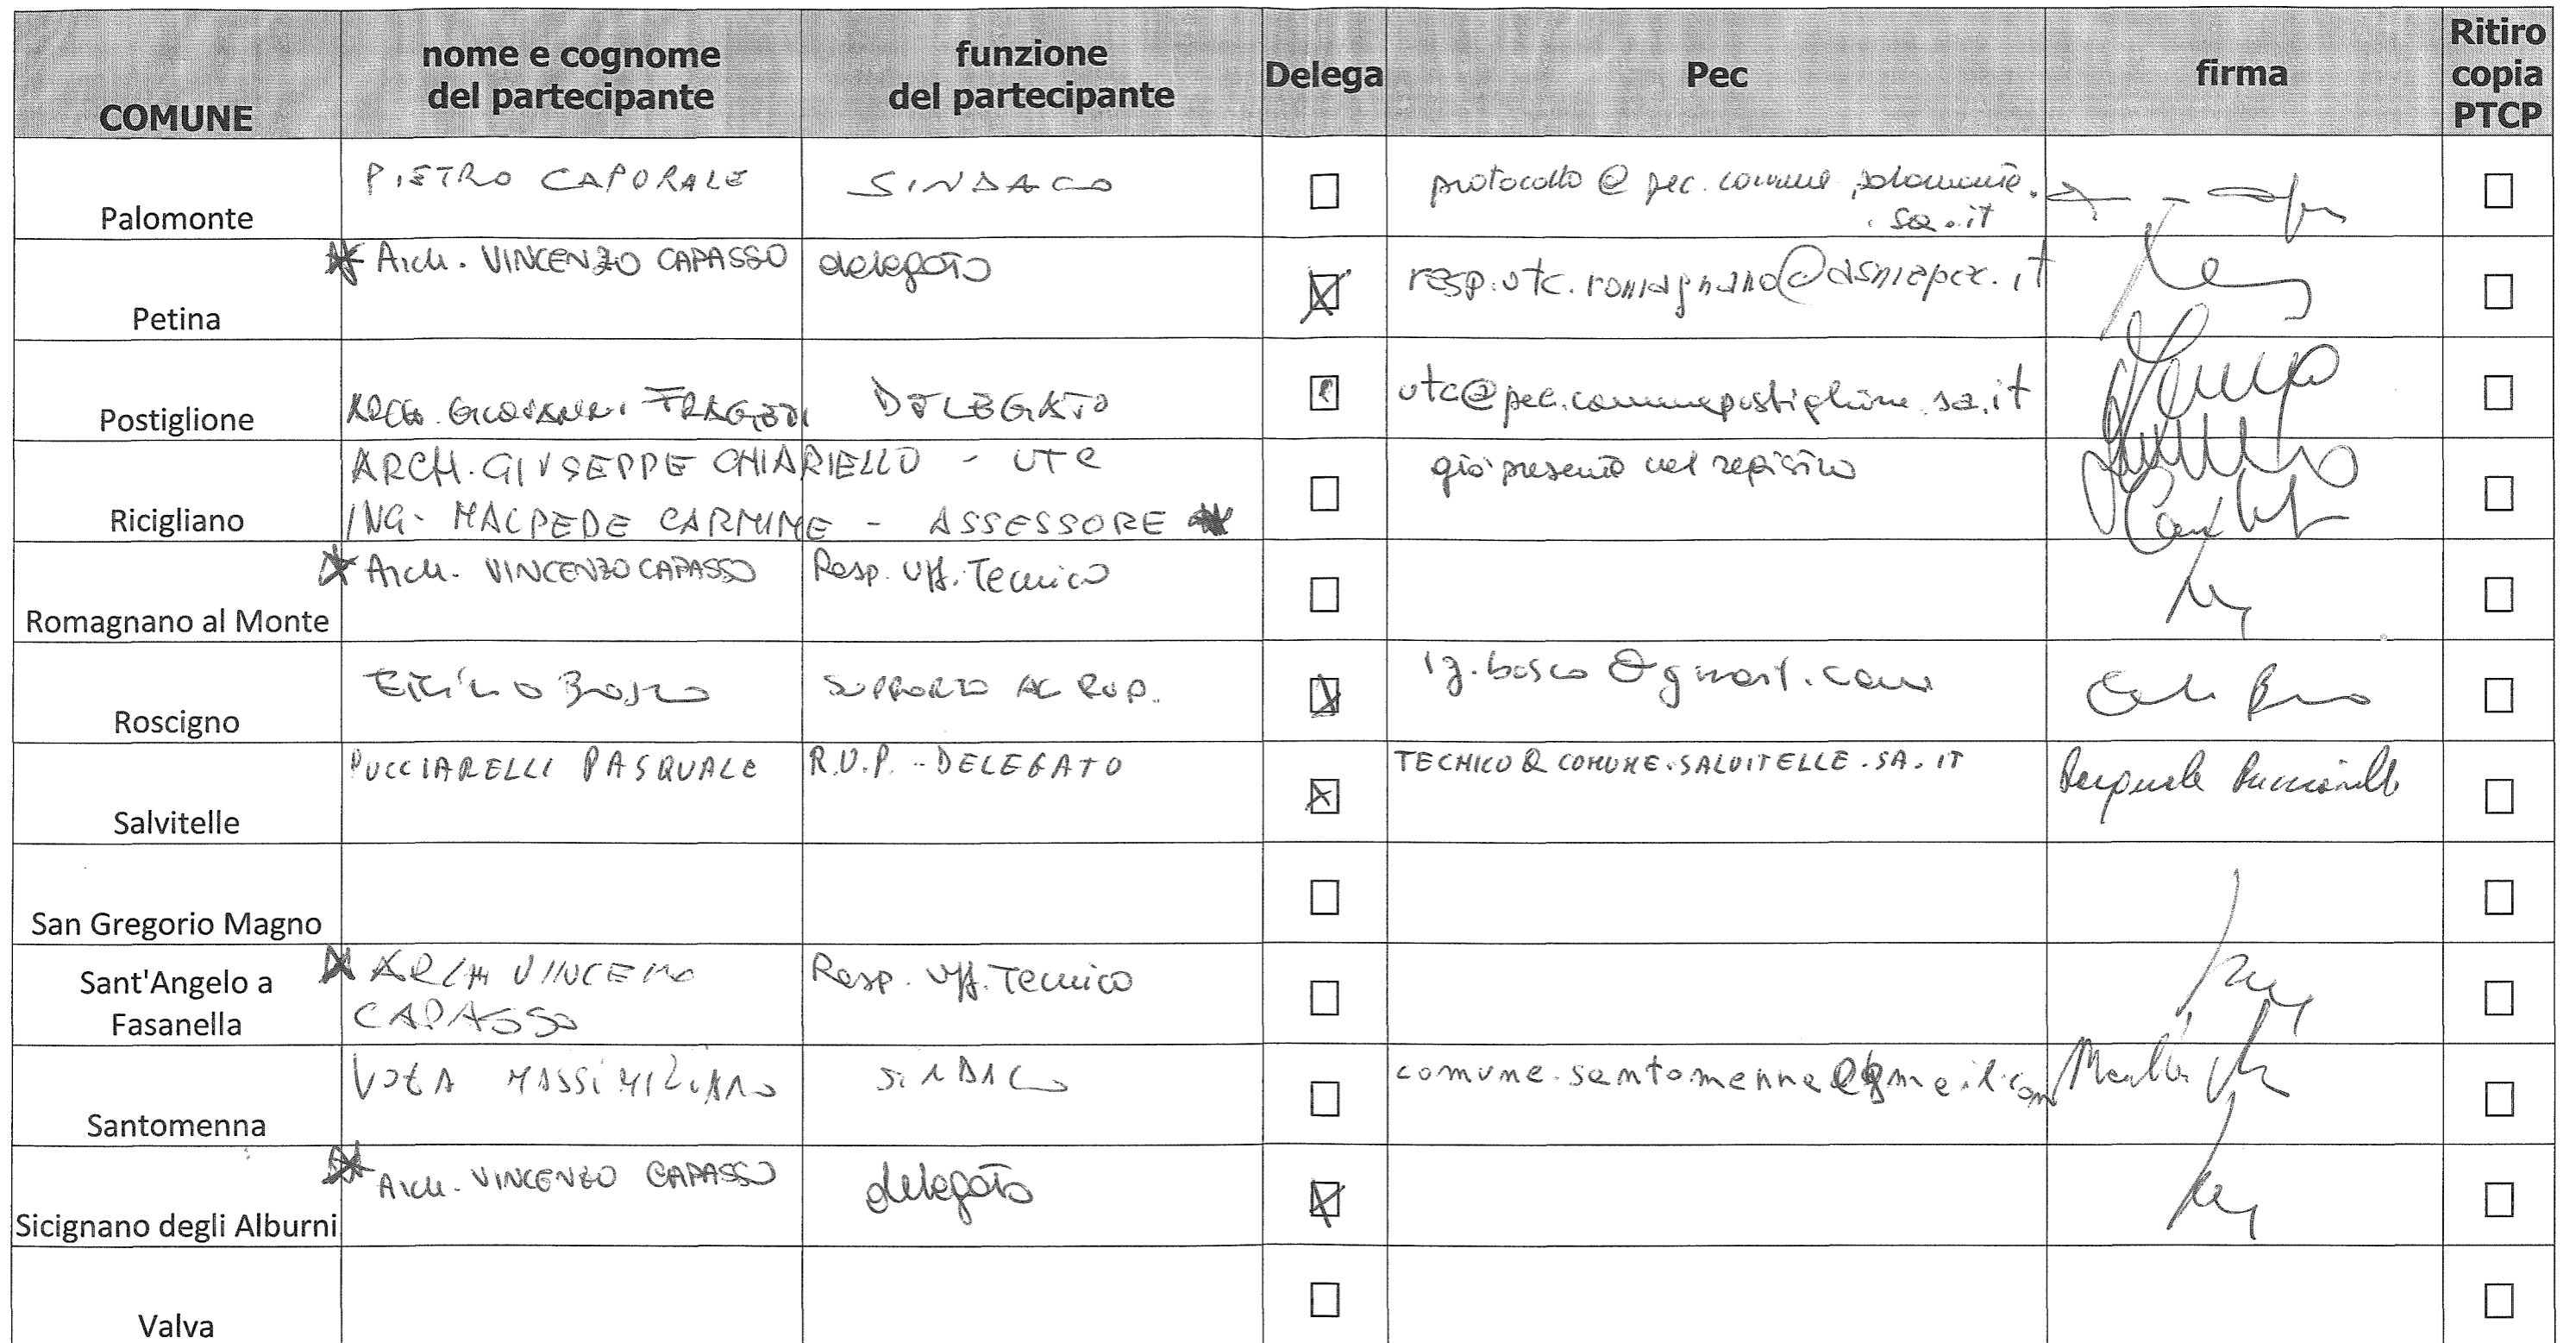 COMUNE nome e cognome del partecipante funzione del partecipante Delega Pec firma Ritiro copia PTCP
Palomonte PIETRO CAPORALE SINDACO protocollo@pec.comune.palomonte.
.sa.it
Petina Arch. VINCENZO CAPASSO delegato resp.utc.romagnano@asmepec.it
Postiglione ARCH. GIOVANNI DELEGATO utc@pec.comunepostiglione.sa.it
Ricigliano ARCH. GIUSEPPE CHIARIELLO - UTC già presente nel registro
ING. MALPEDE CARMINE - ASSESSORE
Romagnano al Monte Arch. VINCENZO CAPASSO Resp. Uff. Tecnico
Roscigno SUPPORTO AL RUP. ig.bosco@gmail.com
Salvitelle PUCCIARELLI PASQUALE R.U.P. - DELEGATO TECNICO@COMUNE.SALVITELLE.SA.IT Pasquale Pucciarelli
San Gregorio Magno
Sant'Angelo a Fasanella ARCH VINCENZO CAPASSO Resp. Uff. Tecnico
Santomenna VOZA MASSIMILIANO SINDACO comune.santomenna@gmail.com
Sicignano degli Alburni Arch. VINCENZO CAPASSO delegato
Valva